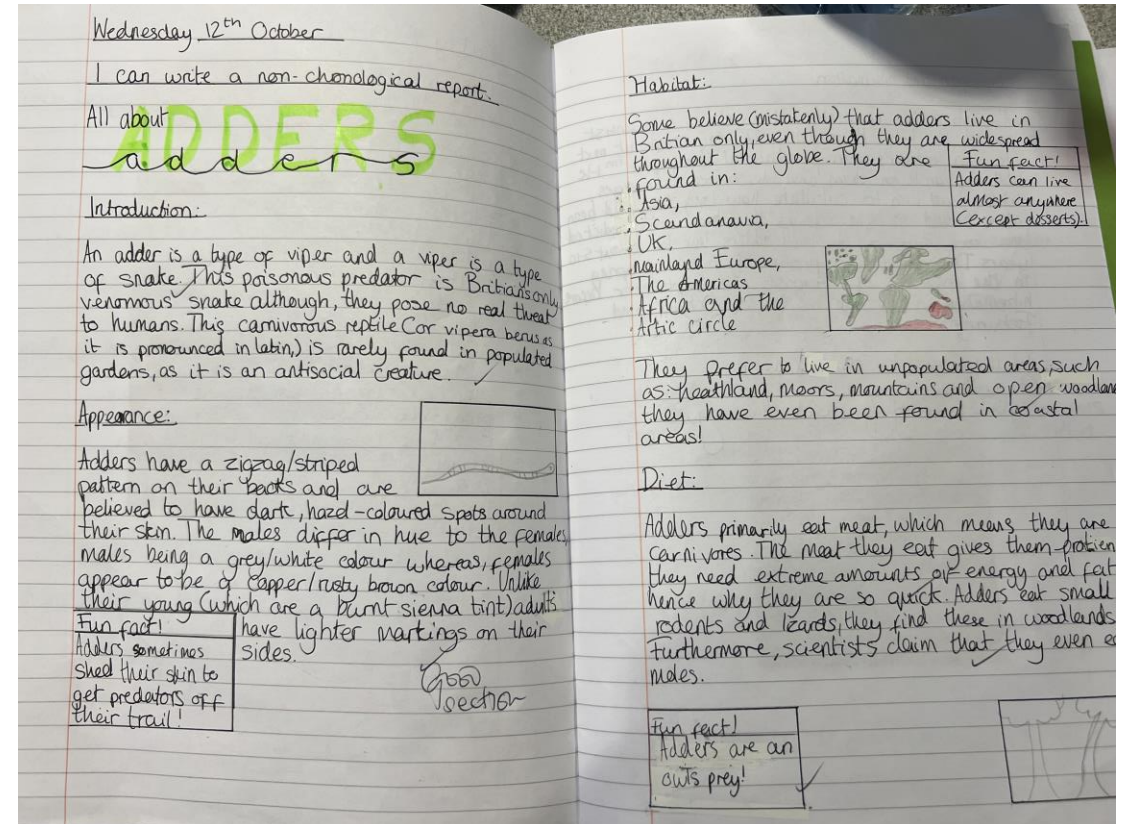 Wednesday 12th October
I can write a non-chonological report.
All about
ADDERS
adders
Introduction:
An adder is a type of viper and a viper is a type
of snake. This poisonous predator is Britians only
venomous snake although, they pose no real threat
to humans. This carnivorous reptile (or vipera berus as
it is pronounced in latin,) is rarely found in populated
gardens, as it is an antisocial creature.
Appearance:
Adders have a zigzag/striped
pattern on their backs and are
believed to have dark, hazel-coloured spots around
their skin. The males differ in hue to the females,
males being a grey/white colour whereas, females
appear to be a copper/rusty brown colour. Unlike
their young (which are a burnt sienna tint) adults
have lighter markings on their
sides.
Fun fact!
Adders sometimes
shed their skin to
get predators off
their trail!
Good
section
Habitat:
Some believe (mistakenly) that adders live in
Britian only, even though they are widespread
throughout the globe. They are
found in:
Asia,
Scandanavia,
UK,
mainland Europe,
The Americas
Africa and the
Artic circle
Fun fact!
Adders can live
almost anywhere
(except desserts).
They prefer to live in unpopulated areas, such
as: heathland, moors, mountains and open woodland
they have even been found in coastal
areas!
Diet:
Adders primarily eat meat, which means they are
carnivores. The meat they eat gives them protien
they need extreme amounts of energy and fat
hence why they are so quick. Adders eat small
rodents and lizards, they find these in woodlands
Furthermore, scientists claim that they even
moles.
Fun fact!
Adders are an
owls prey!